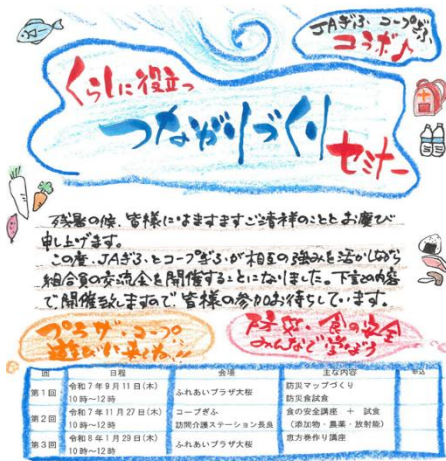 JAぎふ コープぎふ
コラボ♪
くらしに役立つ
つながりづくり
セミナー
残暑の候、皆様にはますますご清祥のこととお慶び
申し上げます。
この度、JAぎふとコープぎふが相互の強みを活かしながら
組合員の交流会を開催することになりました。下記の内容
で開催致しますので皆様の参加お待ちしています。
プラザ・コープ
遊びに来てね!!
防災・食の安全
みんなで学ぼう
回 日程 会場 主な内容 申込
第1回 令和7年9月11日(木) 10時～12時 ふれあいプラザ大桜 防災マップづくり 防災食試食
第2回 令和7年11月27日(木) 10時～12時 コープぎふ 訪問介護ステーション長良 食の安全講座 + 試食 (添加物・農薬・放射能)
第3回 令和8年1月29日(木) 10時～12時 ふれあいプラザ大桜 恵方巻作り講座